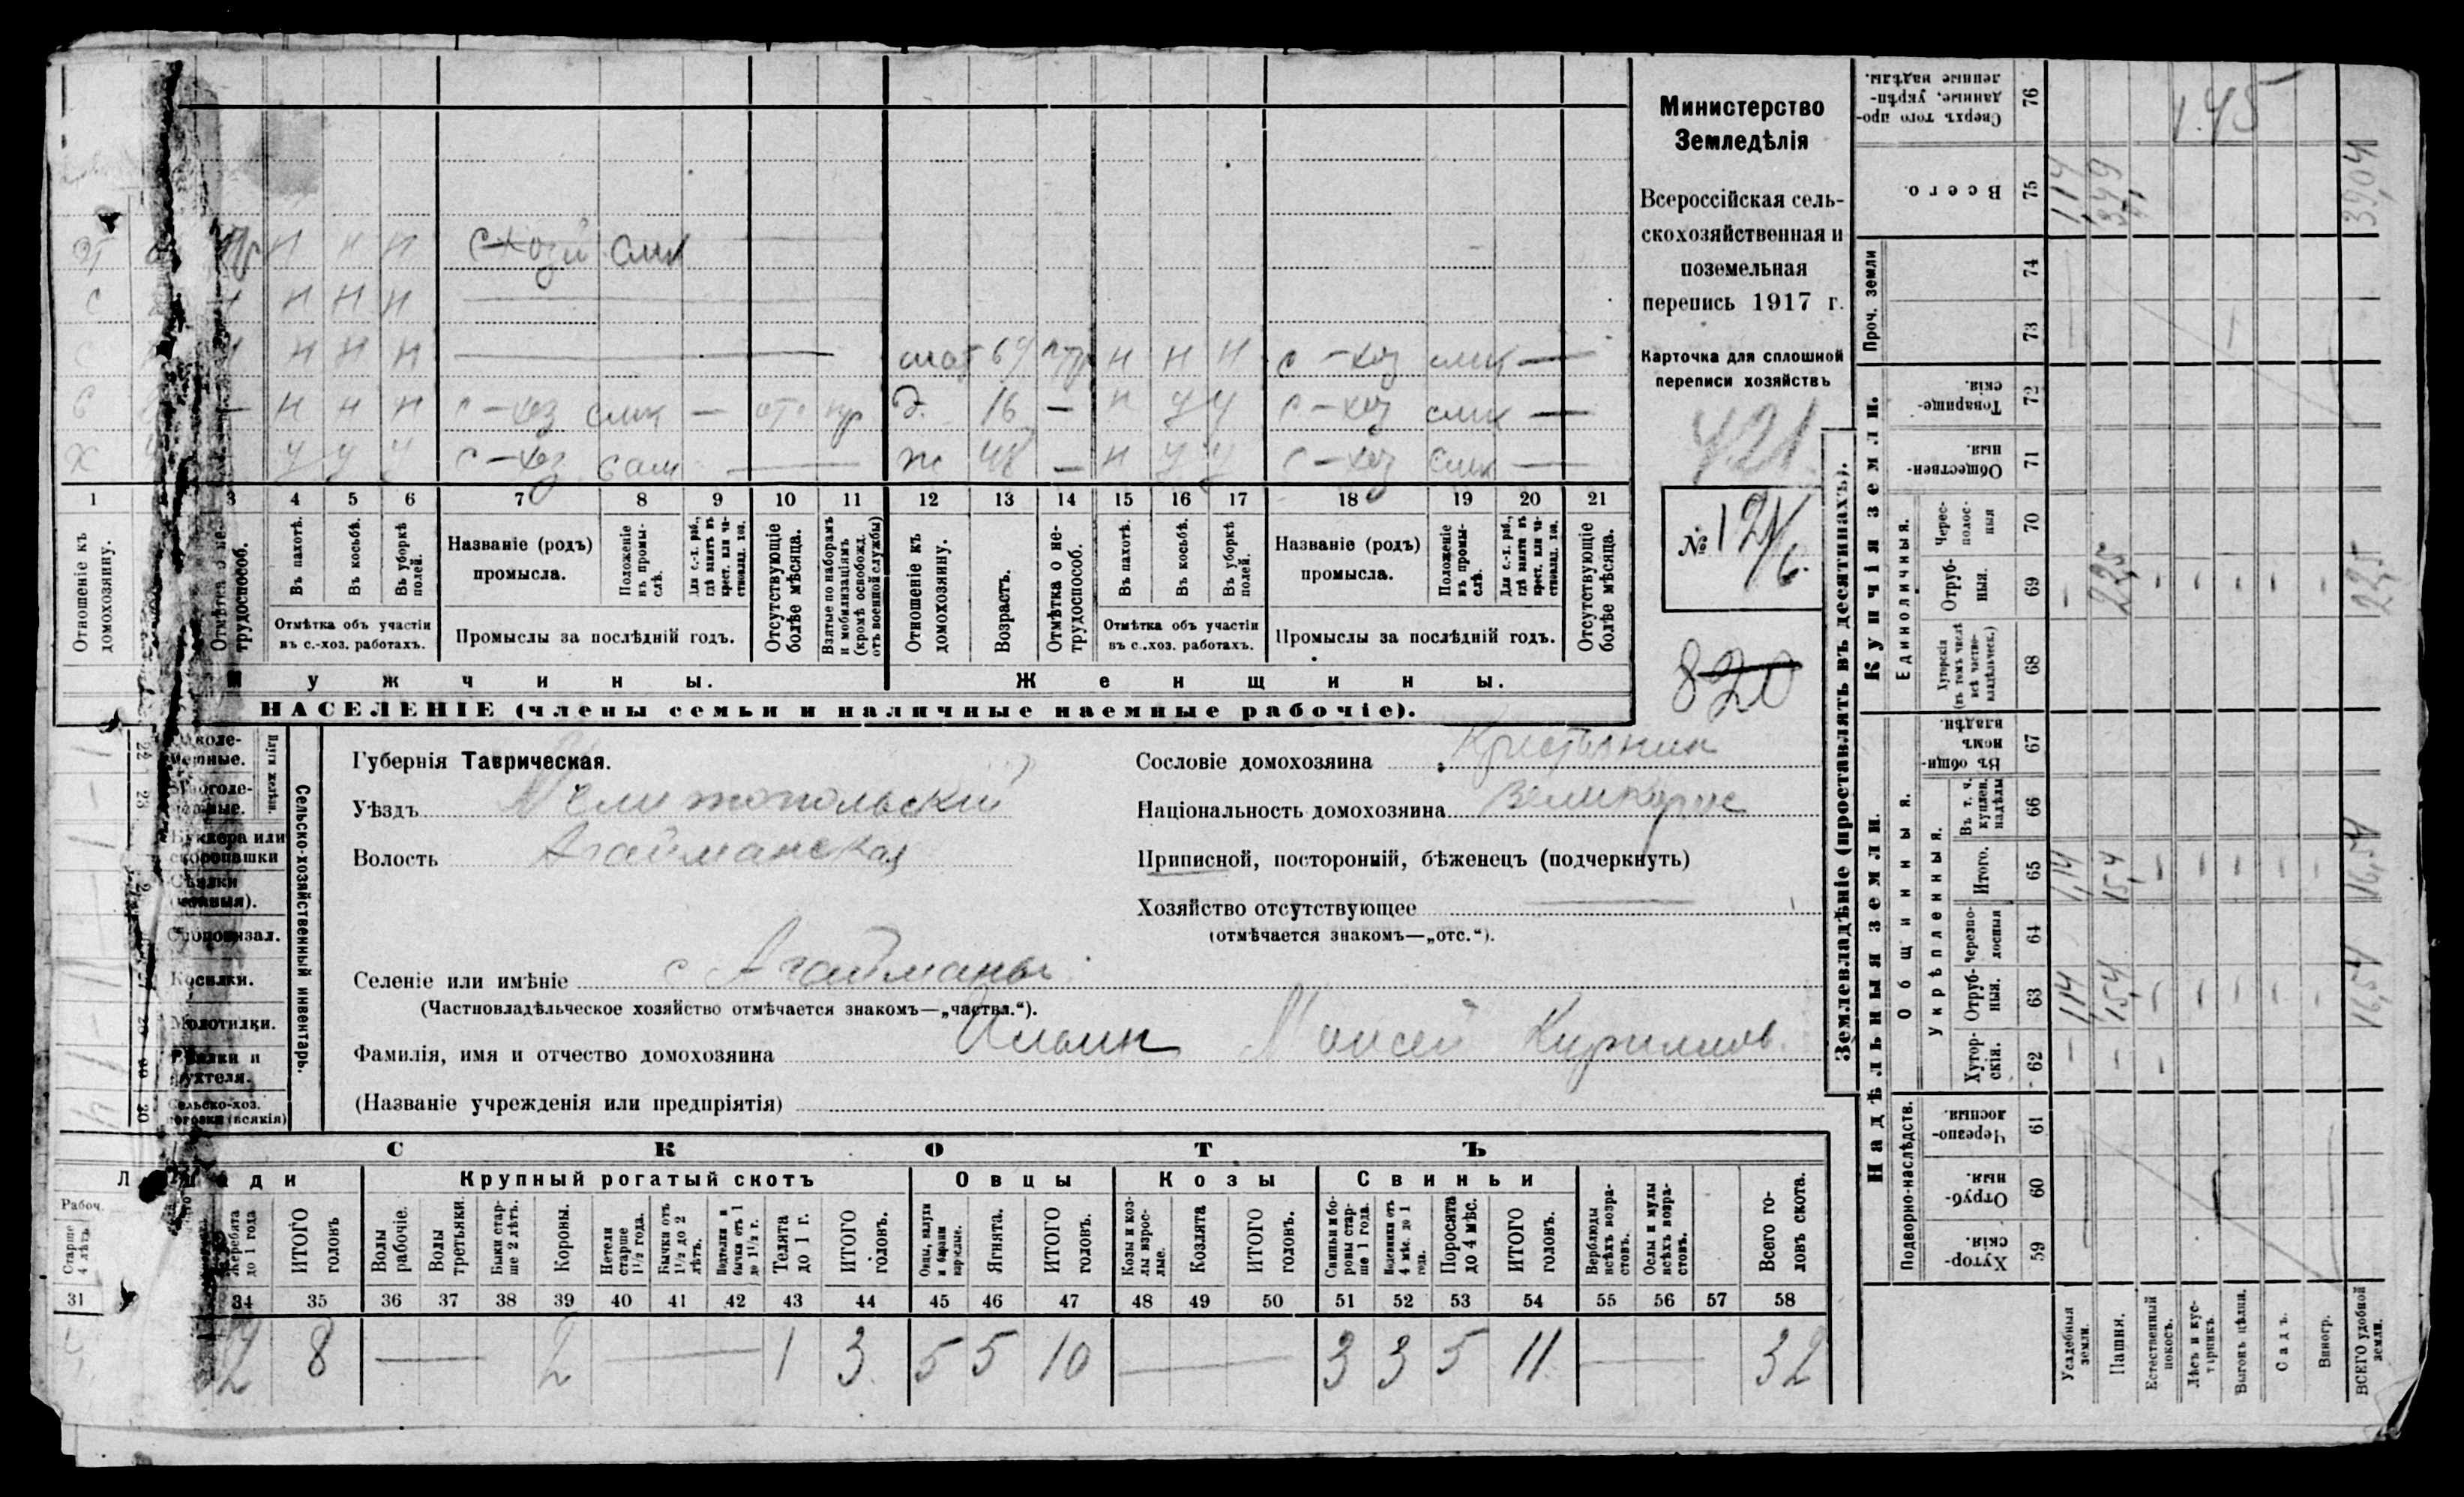 Министерство
Земледѣлія
Всероссійская сель-
скохозяйственная и
поземельная
перепись 1917 г.
Карточка для сплошной
переписи хозяйствъ
421
№ 121/6.
820
с-хоз сам
н н н
н н н
н н н мат 64 н н н с-хоз
н н н с-хоз Д. 16 — н у у с-хоз —
Х у у у с-хоз сам — ж 48 — н у у с-хоз —
1 3 4 5 6 7 8 9 10 11 12 13 14 15 16 17 18 19 20 21
Отношеніе къ домохозяину.
Отмѣтка о не- трудоспособ.
Въ пахотѣ.
Въ косьбѣ.
Въ уборкѣ полей.
Отмѣтка объ участіи
въ с.-хоз. работахъ.
Названіе (родъ)
промысла.
Положеніе въ промы- слѣ.
Для с.-х. раб., гдѣ занятъ въ крест. или ча- стновлад. хоз.
Промыслы за послѣдній годъ.
Отсутствующіе болѣе мѣсяца.
Взятые по наборамъ и мобилизаціямъ (кромѣ освобожд. отъ военной службы)
Отношеніе къ домохозяину.
Возрастъ.
Отмѣтка о не- трудоспособ.
Въ пахотѣ.
Въ косьбѣ.
Въ уборкѣ полей.
Отмѣтка объ участіи
въ с.-хоз. работахъ.
Названіе (родъ)
промысла.
Положеніе въ промы- слѣ.
Для с.-х. раб., гдѣ занята въ крест. или ча- стновлад. хоз.
Промыслы за послѣдній годъ.
Отсутствующіе болѣе мѣсяца.
Мужчины. Женщины.
НАСЕЛЕНІЕ (члены семьи и наличные наемные рабочіе).
Сельско-хозяйственный инвентарь.
Косилки.
Молотилки.
Губернія Таврическая.
Уѣздъ Мелитопольский
Волость Агайманская
Сословіе домохозяина Крестьянин
Національность домохозяина Великорос
Приписной, посторонній, бѣженецъ (подчеркнуть)
Хозяйство отсутствующее
(отмѣчается знакомъ—„отс.“).
Селеніе или имѣніе с Агайманы
(Частновладѣльческое хозяйство отмѣчается знакомъ—„частвл.“).
Фамилія, имя и отчество домохозяина Ильин Моисей Кирилов.
(Названіе учрежденія или предпріятія)
СКОТЪ
Лошади Крупный рогатый скотъ Овцы Козы Свиньи
Рабоч.
Старше 4 лѣтъ
Жеребята до 1 года
ИТОГО головъ
Волы рабочіе.
Волы третьяки.
Быки стар- ше 2 лѣтъ.
Коровы.
Нетели старше 1½ года.
Бычки отъ 1½ до 2 лѣтъ.
Подтелки и бычки отъ 1 до 1½ г.
Телята до 1 г.
ИТОГО головъ.
Овцы, валухи и бараны взрослые.
Ягнята.
ИТОГО головъ.
Козы и коз- лы взрос- лые.
Козлята
ИТОГО головъ.
Свиньи и бо- ровы стар- ше 1 года.
Подсвинки отъ 4 мѣс. до 1 года.
Поросята до 4 мѣс.
ИТОГО головъ.
Верблюды всѣхъ возра- стовъ.
Ослы и мулы всѣхъ возра- стовъ.
Всего го- ловъ скота.
31 34 35 36 37 38 39 40 41 42 43 44 45 46 47 48 49 50 51 52 53 54 55 56 57 58
2 8 — 2 — 1 3 5 5 10 — 3 3 5 11 — 32
Землевладѣніе (проставлять въ десятинахъ).
Надѣльныя земли. Купчія земли.
Подворно-наслѣдств.
Общинныя.
Укрѣпленныя.
Единоличныя.
Проч. земли
Хутор- скія. 59
Отруб- ныя. 60
Черезпо- лосныя. 61
Хутор- скія. 62
Отруб- ныя. 63
Черезпо- лосныя 64
Итого. 65
Въ т. ч. куплен. надѣлы 66
Въ общин- номъ владѣн. 67
Хуторскія (въ томъ числѣ всѣ частно- владѣльческ.) 68
Отруб- ныя. 69
Черес- полос- ныя 70
Обществен- ныя. 71
Товарище- скія. 72
73
74
Всего. 75
Сверхъ того про- данные, укрѣп- ленные надѣлы. 76
Усадебныя земли.
Пашня.
Естественный покосъ.
Лѣсъ и кус- тарникъ.
Выгонъ цѣлин.
Садъ.
Виногр.
ВСЕГО удобной земли.
1,14 15,4 16,54
1,14 15,4 16,54
22,5 22,5
1,14 39,04
1.45